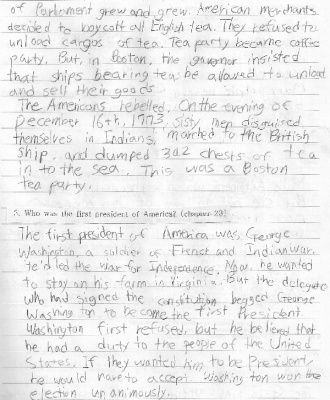 of Parliament grew and grew. American merchants
decided to boycott all English tea. They refused to
unload cargos of tea. Tea party became coffee
party. But, in Boston, the governor insisted
that ships bearing tea be allowed to unload
and sell their goods.
The Americans rebelled. On the evening of
December 16th, 1773. Sisty men disguised
themselves in Indians, marched to the British
ship. and dumped 342 chests of tea
in to the sea. This was a Boston
tea party.
5. Who was the first president of America? (chapter 23)
The first president of America was, George
Washington, a soldier of French and Indian War.
He'd led the war for Independence. Now, he wanted
to stay on his farm in Virginia. But the delegate
who had signed the constitution begged George
Washing ton to become the first President.
Washington first refused, but he believed that
he had a duty to the people of the United
States. If they wanted him to be President,
he would have to accept. Washing ton won the
election unanimously.